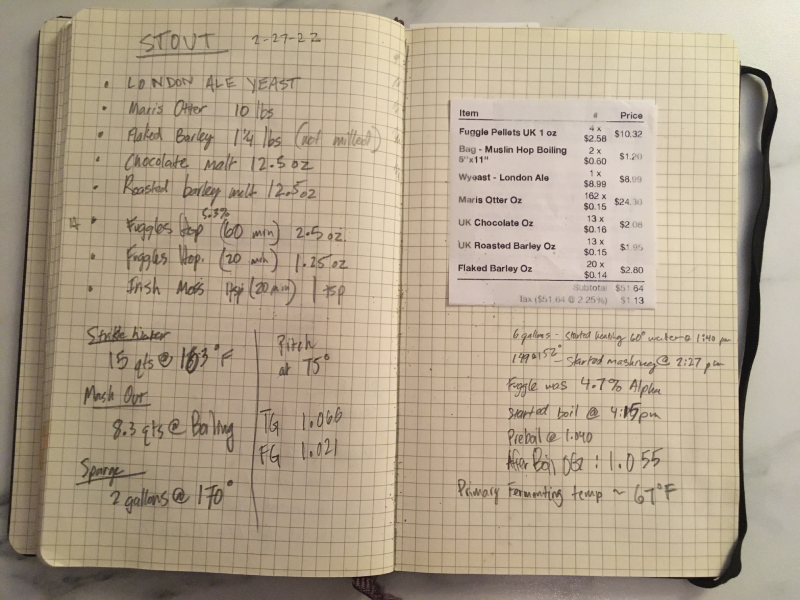 STOUT 2-27-22
• LONDON ALE YEAST
• Maris Otter 10 lbs
• Flaked Barley 1 1/4 lbs (not milled)
• Chocolate malt 12.5 oz
• Roasted barley malt 12.5 oz
5.3%
• Fuggles Hop (60 min) 2.5 oz.
• Fuggles Hop. (20 min) 1.25 oz
• Irish Moss (20 min) 1 tsp
Strike Water
15 qts @ 163°F
Mash Out
8.3 qts @ Boiling
Sparge
2 gallons @ 170°
Pitch
at 75°
TG 1.066
FG 1.021
Item # Price
Fuggle Pellets UK 1 oz 4 x $2.58 $10.32
Bag - Muslin Hop Boiling 5"x11" 2 x $0.60 $1.20
Wyeast - London Ale 1 x $8.99 $8.99
Maris Otter Oz 162 x $0.15 $24.30
UK Chocolate Oz 13 x $0.16 $2.08
UK Roasted Barley Oz 13 x $0.15 $1.95
Flaked Barley Oz 20 x $0.14 $2.80
Subtotal $51.64
Tax ($51.64 @ 2.25%) $1.13
6 gallons - started heating 60° water @ 1:40 pm
152° - Started mashing @ 2:27 pm
Fuggle was 4.7% Alpha
Started boil @ 4:15pm
Preboil @ 1.040
After Boil OG: 1.055
Primary Fermenting temp ~ 67°F